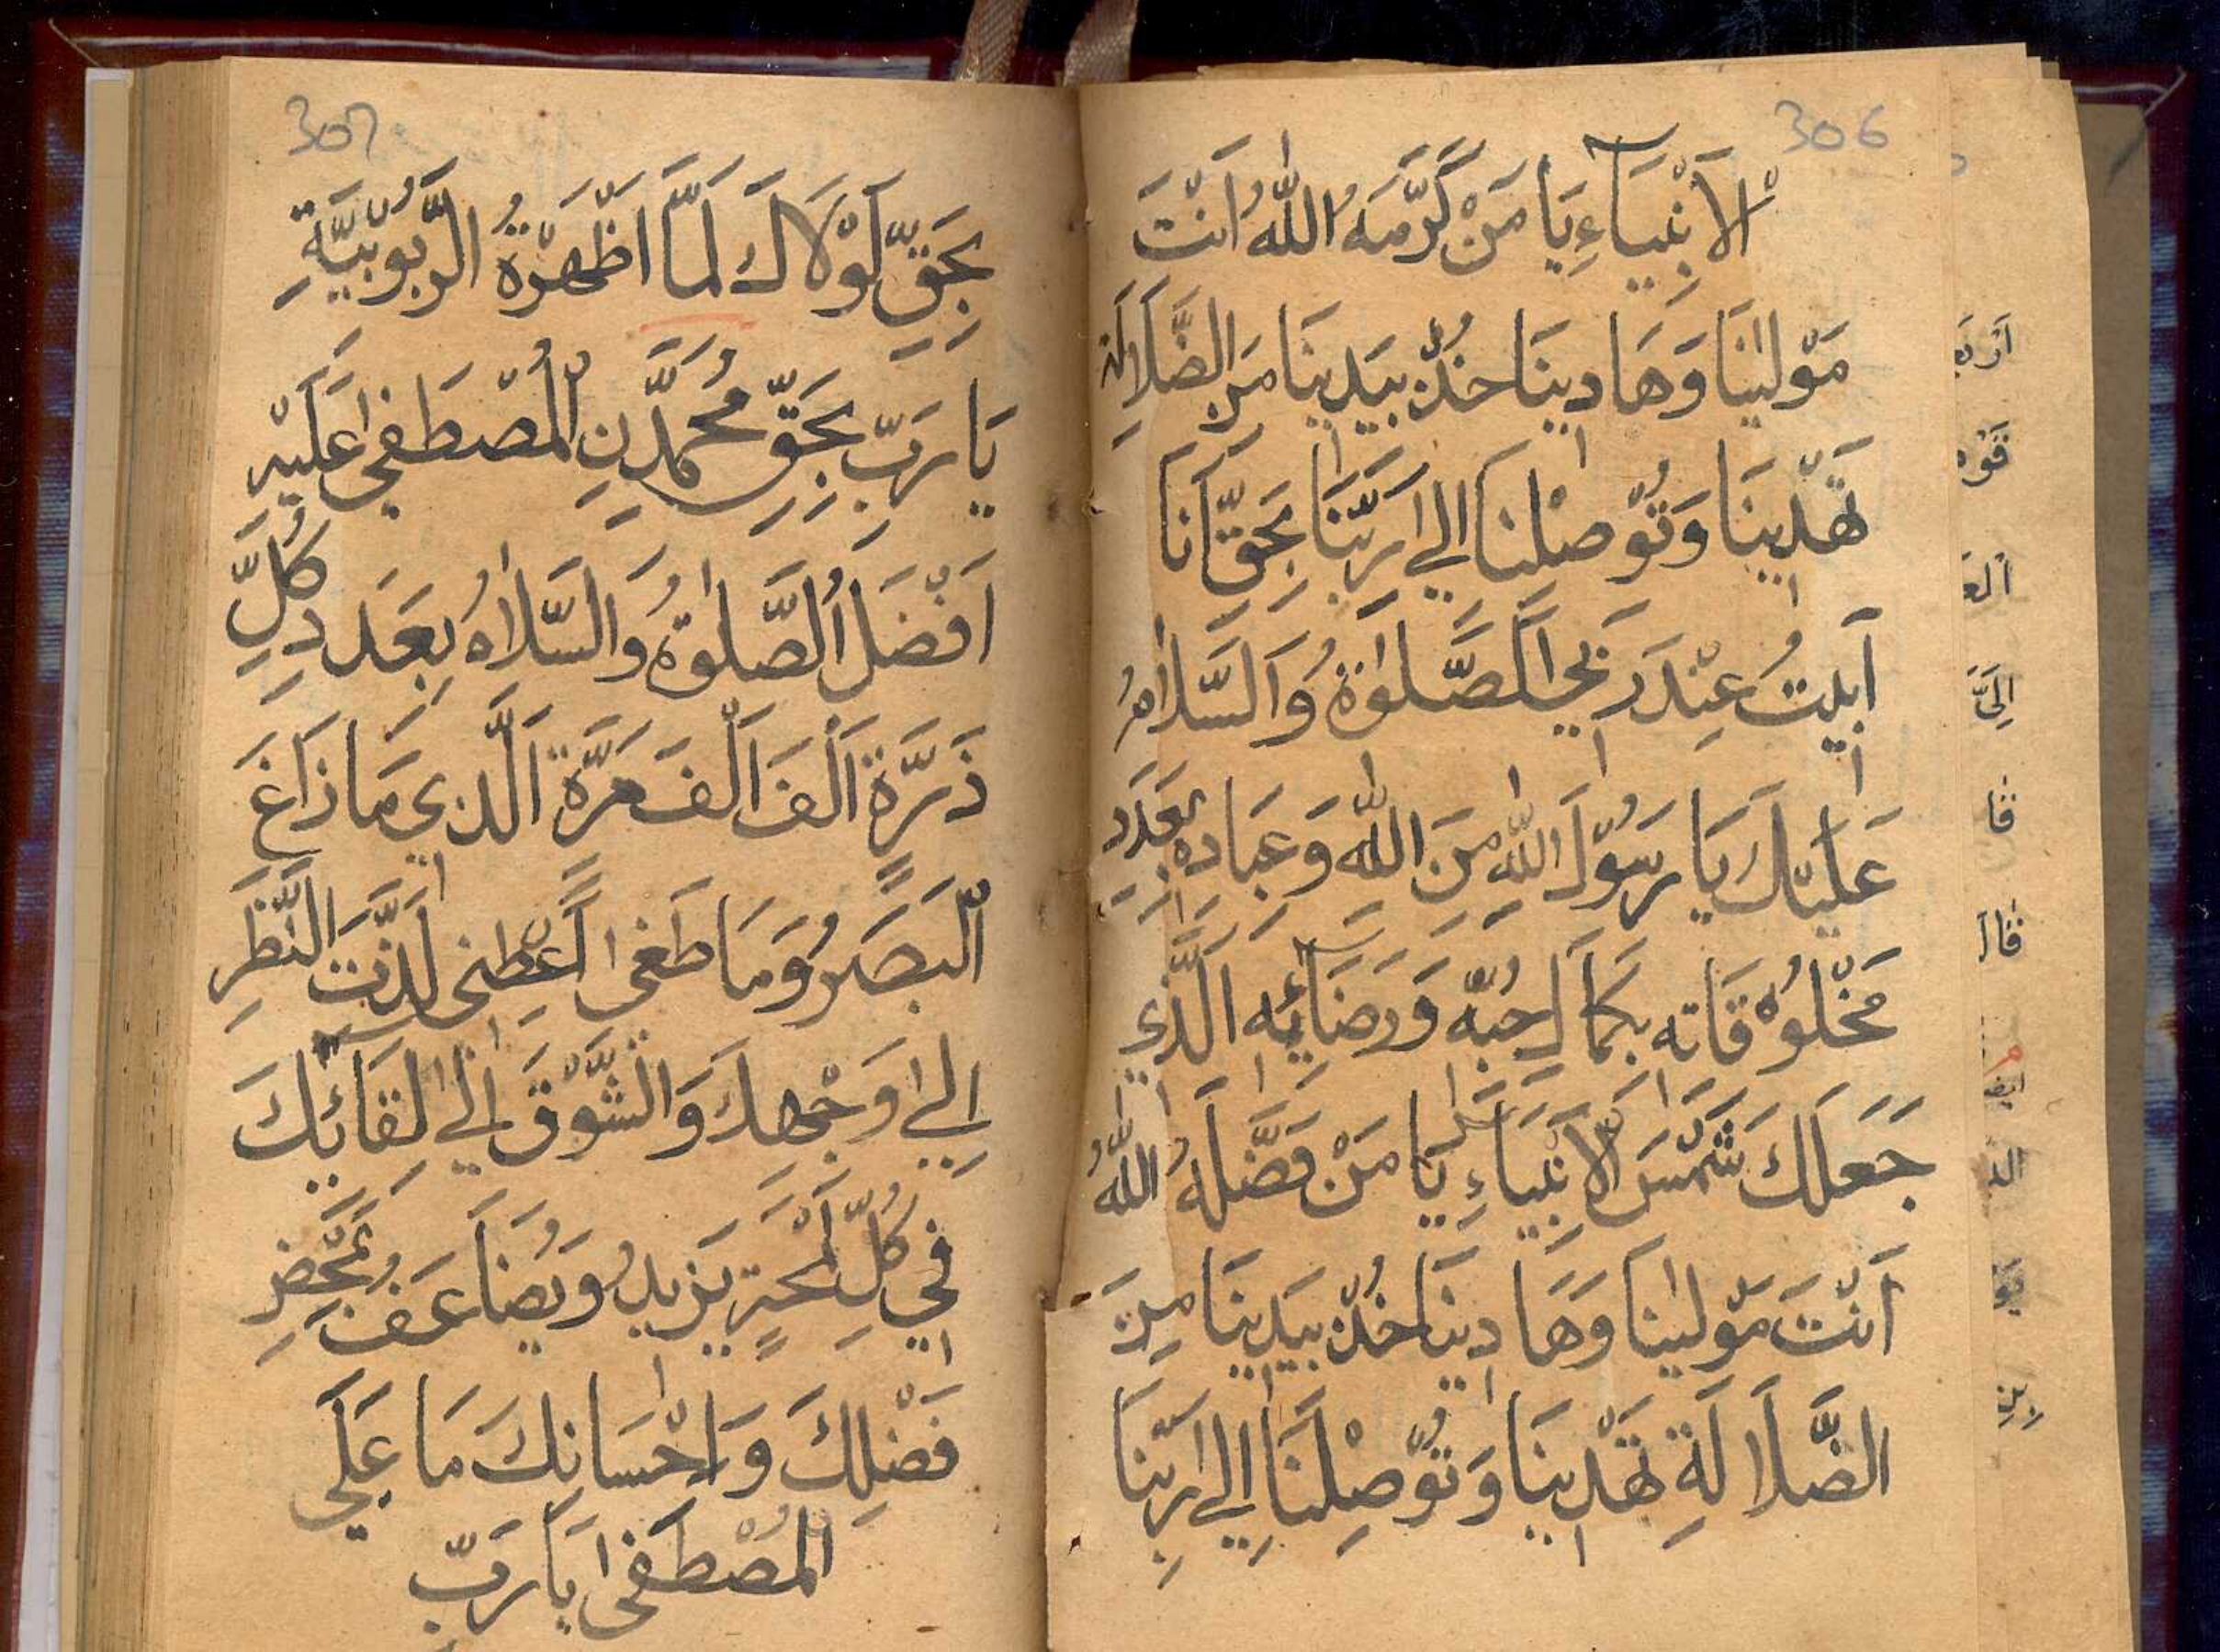 306
الْاَنْبِيَاءِ يَا مَنْ كَرَّمَهُ اللّٰهُ اَنْتَ
مَوْلٰينَا وَهَادِينَا خُذْ بِيَدِينَا مِنَ الضَّلَالَةِ
تَهْدِينَا وَتُوْصِلْنَا اِلٰي رَبِّنَا بِحَقِّ اَنَا
اَبِيتُ عِنْدَ رَبِّي اَلصَّلٰوةُ وَالسَّلَامُ
عَلَيْكَ يَا رَسُوْلَ اللّٰهِ مِنَ اللّٰهِ وَعِبَادِهِ بِعَدَدِ
مَخْلُوْقَاتِهِ بِكَمَالِ حُبِّهِ وَرِضَائِهِ الَّذِي
جَعَلَكَ شَمْسَ الْاَنْبِيَاءِ يَا مَنْ فَضَّلَهُ اللّٰهُ
اَنْتَ مَوْلٰينَا وَهَادِينَا خُذْ بِيَدِينَا مِنَ
الضَّلَالَةِ تَهْدِينَا وَتُوْصِلْنَا اِلٰي رَبِّنَا
307
بِحَقِّ لَوْلَاكَ لَمَّا اَظْهَرْةُ الرَّبُوْبِيَّةِ
يَا رَبِّ بِحَقِّ مُحَمَّدَنِ الْمُصْطَفٰي عَلَيْهِ
اَفْضَلُ الصَّلٰوةُ وَالسَّلَامُ بِعَدَدِ كُلِّ
ذَرَّةٍ اَلْفَ اَلْفَ مَرَّةً الَّذِي مَا زَاغَ
الْبَصَرُ وَمَا طَغٰي اَعْطِنِي لَذَّتَ النَّظَرِ
اِلٰي وَجْهِكَ وَالشَّوْقَ اِلٰي لِقَائِكَ
فِي كُلِّ لَمْحَةٍ يَزِيدُ وَيُضَاعَفُ بِمَحْضِ
فَضْلِكَ وَاِحْسَانِكَ مَا عَلَي
الْمُصْطَفٰي يَا رَبِّ